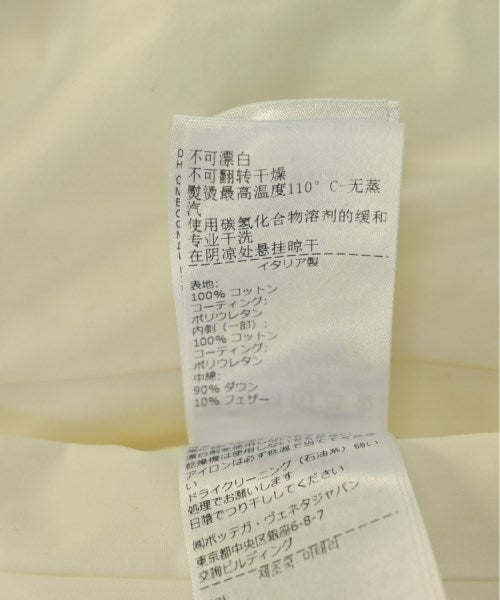 不可漂白
不可翻转干燥
熨烫最高温度110°C-无蒸
汽
使用碳氢化合物溶剂的缓和
专业干洗
在阴凉处悬挂晾干
イタリア製
表地:
100% コットン
コーティング:
ポリウレタン
内側 (一部):
100% コットン
コーティング:
ポリウレタン
中綿:
90% ダウン
10% フェザー
漂白剤を使用しないでください
乾燥機は使用しないでください
アイロンは必ず低温で当ててくださ
い
ドライクリーニング (石油系) の
処理でお願いします
日陰でつり干ししてください
㈱ボッテガ・ヴェネタジャパン
東京都中央区銀座6-8-7
交詢ビルディング
제조국 이태리